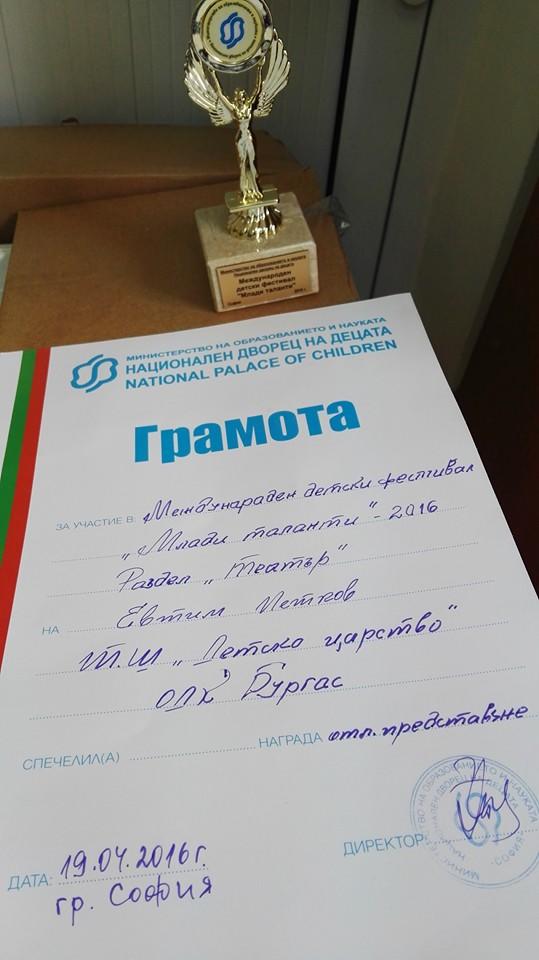 Министерство на образованието и науката
Национален дворец на децата
Международен
детски фестивал
"Млади таланти"
МИНИСТЕРСТВО НА ОБРАЗОВАНИЕТО И НАУКАТА
НАЦИОНАЛЕН ДВОРЕЦ НА ДЕЦАТА
NATIONAL PALACE OF CHILDREN
Грамота
ЗА УЧАСТИЕ В: Междунараден детски фестивал
„Млади таланти" - 2016
Раздел „Театър"
НА Евтим Петков
Т.Ш „Детско царство"
ОЛК Бургас
СПЕЧЕЛИЛ(А) НАГРАДА отл. представяне
ДИРЕКТОР:
ДАТА: 19.04.2016г.
гр. София